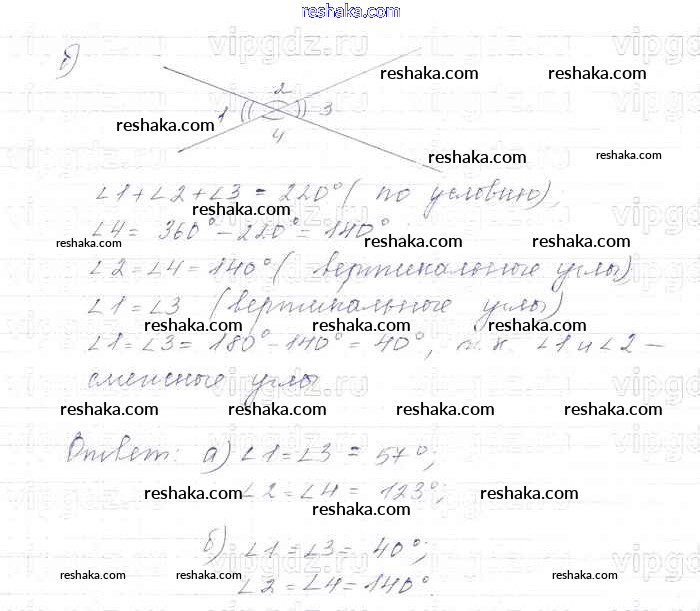 reshaka.com
vipgdz.ru vipgdz.ru vipgdz.ru vipg
б)
reshaka.com reshaka.com
2
1 3
reshaka.com
4
reshaka.com reshaka.com
∠1+∠2+∠3 = 220° ( по условию)
reshaka.com
∠4 = 360° - 220° = 140°
reshaka.com reshaka.com reshaka.com
∠2 = ∠4 = 140° ( вертикальные углы)
∠1 = ∠3 (вертикальные углы)
reshaka.com reshaka.com reshaka.com
∠1 = ∠3 = 180° - 140° = 40°, т.к. ∠1 и ∠2 -
смежные углы
reshaka.com reshaka.com reshaka.com reshaka.com
Ответ: а) ∠1 = ∠3 = 57°;
∠2 = ∠4 = 123°;
reshaka.com reshaka.com reshaka.com
reshaka.com
б) ∠1 = ∠3 = 40°;
reshaka.com reshaka.com reshaka.com reshaka.com
∠2 = ∠4 = 140°.